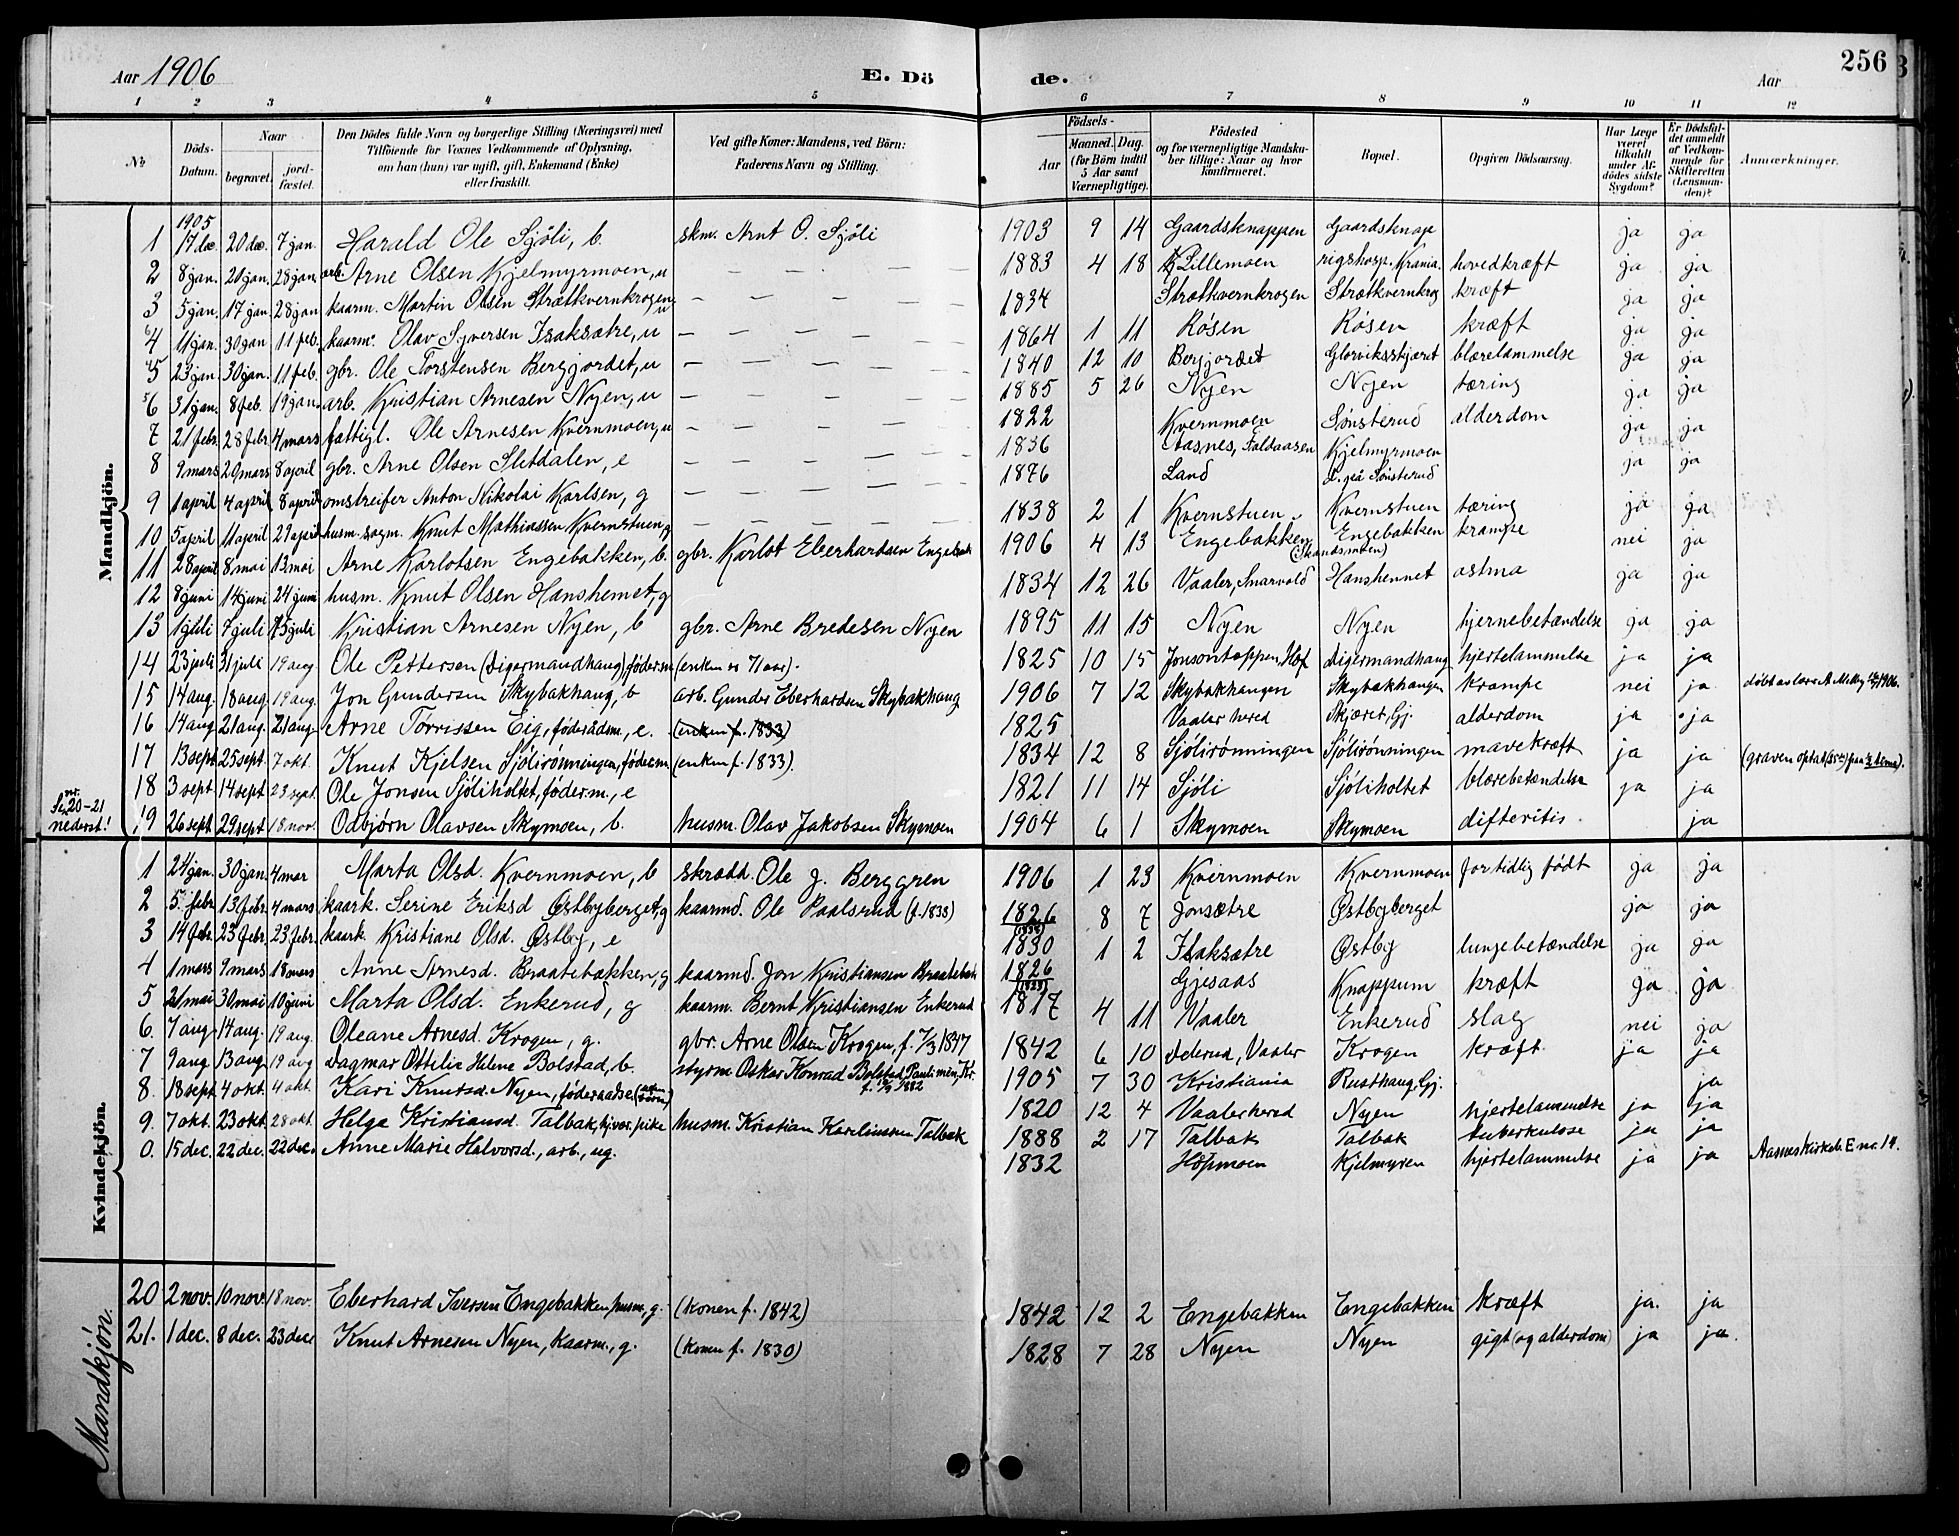 256
Aar 1906 E. Dö de. Aar
1 2 3 4 5 6 7 8 9 10 11 12
№ Döds-Datum. Naar begravet. jord-fæstet. Den Dödes fulde Navn og borgerlige Stilling (Næringsvei) med Tilföiende for Voxnes Vedkommende af Oplysning, om han (hun) var ugift, gift, Enkemand (Enke) eller fraskilt. Ved gifte Koner: Mandens, ved Börn: Faderens Navn og Stilling. Födsels- Aar Maaned. Dag. (for Börn indtil 5 Aar samt Værnepligtige). Födested og for værnepligtige Mandsku-ber tillige: Naar og hvor konfirmeret. Bopæl. Opgiven Dödsaarsag. Har Læge været tilkaldt under Af-dödes sidste Sygdom? Er Dödsfal-det anmeldt af Vedkom-mende for Skifteretten (Lensman-den)? Anmærkninger.
Mandkjön.
1905
1 17 dec. 20 dec. 7 jan. Harald Ole Sjöli, b. skm. Arnt O. Sjöli 1903 9 14 Gaardsknappen Gaardsknap ja ja
2 8 jan. 21 jan. 28 jan. arb. Arne Olsen Kjelmyrmoen, u — — — — — 1883 4 18 Lillemoen rigshosp. Krania. hovedkræft ja ja
3 5 jan. 17 jan. 28 jan kaarm. Martin Olsen Strætkvernkrogen, u — — — — — 1834 Strætkvernkrogen Strætkvernkrog kræft ja ja
4 11 jan. 30 jan 11 feb. kaarm. Olav Syversen Isaksætre, u — — — — — 1864 1 11 Røsen Røsen kræft ja ja
5 23 jan. 30 jan. 11 feb. gbr. Ole Torstensen Bergjordet, u — — — — — 1840 12 10 Bergjordet Glorviksskjæret blærelammelse ja ja
6 31 jan. 8 feb. 19 jan. arb. Kristian Arnesen Nyen, u — — — — — 1885 5 26 Nyen Nyen tæring ja ja
7 21 febr. 28 febr. 4 mars fattigl. Ole Arnesen Kvernmoen, u — — — — — 1822 Kvernmoen Sønsterud alderdom ja ja
8 9 mars 20 mars 8 april gbr. Arne Olsen Sletdalen, e — — — — — 1836 Aasnes, Falkaasen Kjelmyrmoen ja ja
9 1 april 4 april 8 april omstreifer Anton Nikolai Karlsen, g — — — — — 1876 Land d. paa Sønsterud
10 5 april 11 april 29 april husm. Knut Mathiassen Kvernstuen, g — — — — — 1838 2 1 Kvernstuen Kvernstuen tæring ja ja
11 28 april 8 mai 13 mai Arne Karlotsen Engebakken, b. gbr. Karlot Eberhardsen Engebak 1906 4 13 Engebakken Engebakken krampe nei ja
12 8 juni 14 juni 24 juni husm. Knut Olsen Hanshemet, g 1834 12 26 Vaaler, Snarvold Hanshemmet astma ja ja
13 1 juli 7 juli 15 juli Kristian Arnesen Nyen, b gbr. Arne Bredesen Nyen 1895 11 15 Nyen Nyen hjernebetændelse ja ja
14 23 juli 31 juli 19 aug Ole Pettersen (Digermandhaug), föderm. (enkm 71 aar). 1825 10 15 Jonsontoppen, Hof Digermandhaug hjertelammelse ja ja
15 14 aug. 18 aug. 19 aug. Jon Gundersen Skybakhaug, b arb. Gunder Eberhardsen Skybakhaug 1906 7 12 Skybakhaugen Skybakhaugen krampe nei ja döbt av lærer A. Melby 1906.
16 14 aug 21 aug. 21 aug. Arne Torrissen Eig, föderådsm., e. (enken f. 1833) 1825 Vaaler hered Skjæret, Gj. alderdom ja ja
17 13 sept 25 sept. 7 okt. Knut Kjelsen Sjölirönningen, föderm. (enken f. 1833). 1834 12 8 Sjölirönningen Sjölirönningen mavekræft ja ja
18 3 sept. 14 sept. 23 sept. Ole Jonsen Sjöliholtet, föderm., e 1821 11 14 Sjöli Sjöliholtet blærebetændelse ja ja
Se nr. 20-21 nederst!
19 26 sept 29 sept 18 nov. Odbjørn Olavsen Skymoen, b. husm. Olav Jakobsen Skymoen 1904 6 1 Skymoen Skymoen difteritis ja
Kvindekjön.
1 24 jan. 30 jan. 4 mar Marta Olsd. Kvernmoen, b skrædd. Ole J. Berggren 1906 1 23 Kvernmoen Kvernmoen for tidlig født ja ja
2 5 febr 13 febr. 4 mars kaark. Serine Eriksd Østbyberget, g kaarmd. Ole Paalsrud (f. 1838) 1826 8 7 Jonsætre Østbyberget ja ja
3 14 febr. 23 febr. 23 febr. kaark. Kristiane Olsd. Østby, e 1830 1 2 Isaksætre Østby lungebetændelse ja ja
4 1 mars 9 mars 18 mars Anne Arnesd. Braatebakken, g kaarmd. Jon Kristiansen Braatebak 1826 Gjesaas Knappum kræft ja ja
5 21 mai 30 mai 10 juni Marta Olsd. Enkerud, g kaarm. Bernt Kristiansen Enkerud 1817 4 11 Vaaler Enkerud slag nei ja
6. 7 aug. 14 aug. 19 aug. Oleane Arnesd. Krogen, g. gbr. Arne Olsen Krogen, f. 7/3 1847 1842 6 10 Vaaler Krogen kræft. ja ja
7 9 aug 13 aug. 19 aug Dagmar Ottilie Helene Bolstad, b. styrm. Oskar Konrad Bolstad 1882 1905 7 30 Kristiania Rusthaug, Gj. ja
8. 18 sept. 4 okt. 4 okt. Kari Knutsd. Nyen, föderaadse. 1820 12 4 Vaalerhered Nyen hjertelammelse ja ja
9. 7 okt. 23 okt. 28 okt. Helga Kristiansd. Talbak, hjvær. pike husm. Kristian Karelinssen Talbak 1888 2 17 Talbak Talbak tuberkulose ja ja
0. 15 dec. 22 dec. 22 dec. Anne Marie Halvorsd., arb., ug. 1832 Hopmoen Kjelmyren hjertelammelse ja ja Aasnes kirkeb. E nr. 14.
Mandkjön.
20 2 nov. 10 nov. 18 nov. Eberhard Iversen Engebakken, husm., g. (konen f. 1842) 1842 12 2 Engebakken Engebakken kræft ja. ja
21. 1 dec. 8 dec. 23 dec Knut Arnesen Nyen, kaarm., g. (konen f. 1830) 1828 7 28 Nyen Nyen gigt (og alderdom) ja ja.